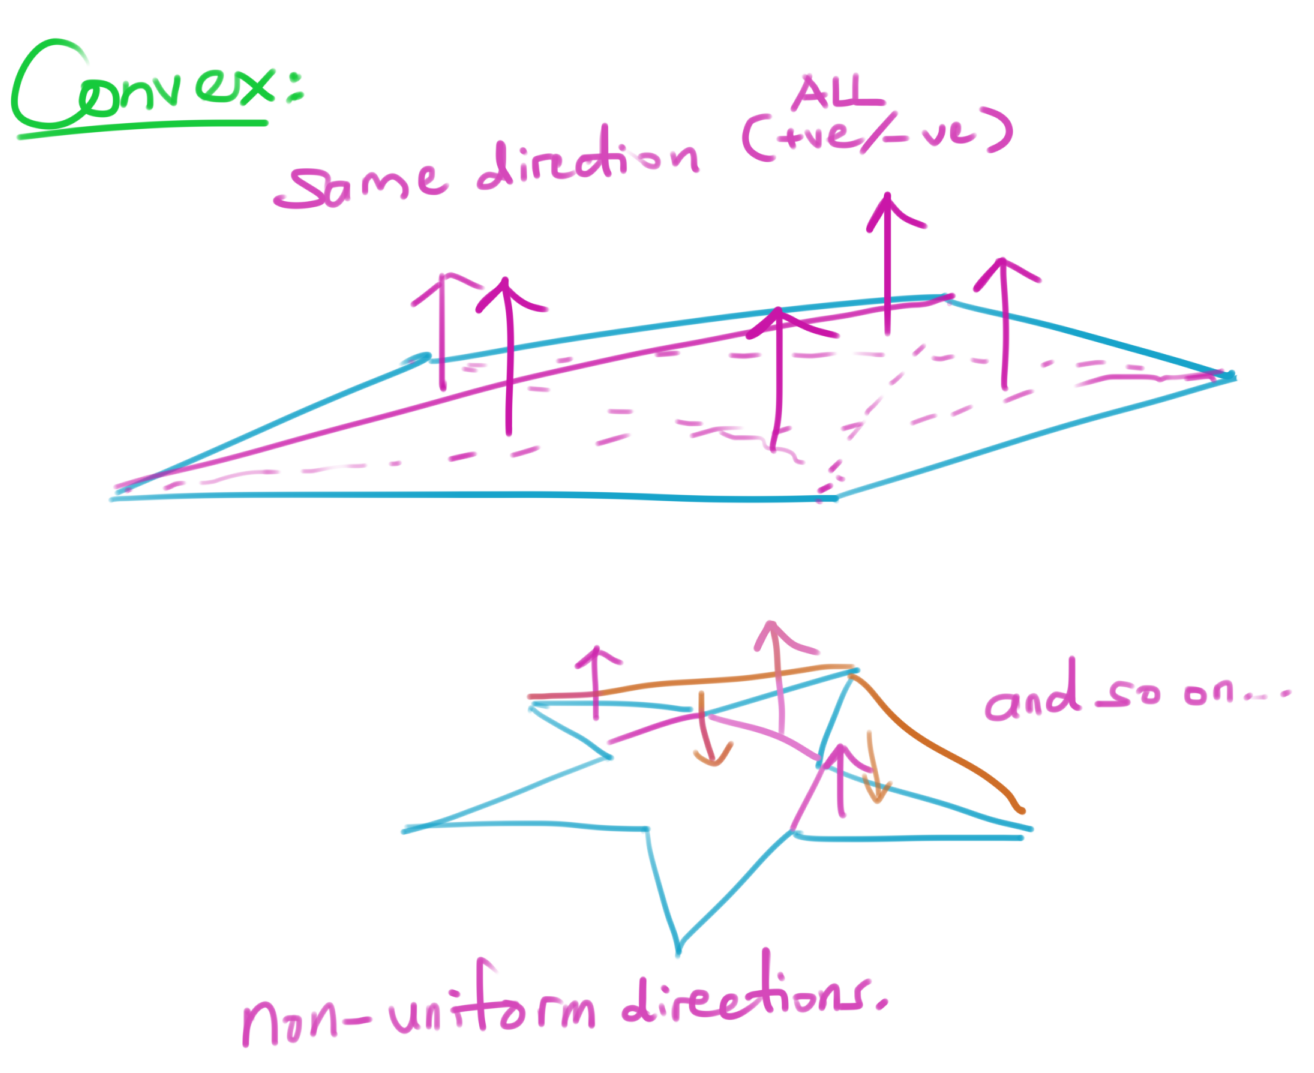 Convex:
Same direction ALL
(+ve/-ve)
and so on...
non-uniform directions.